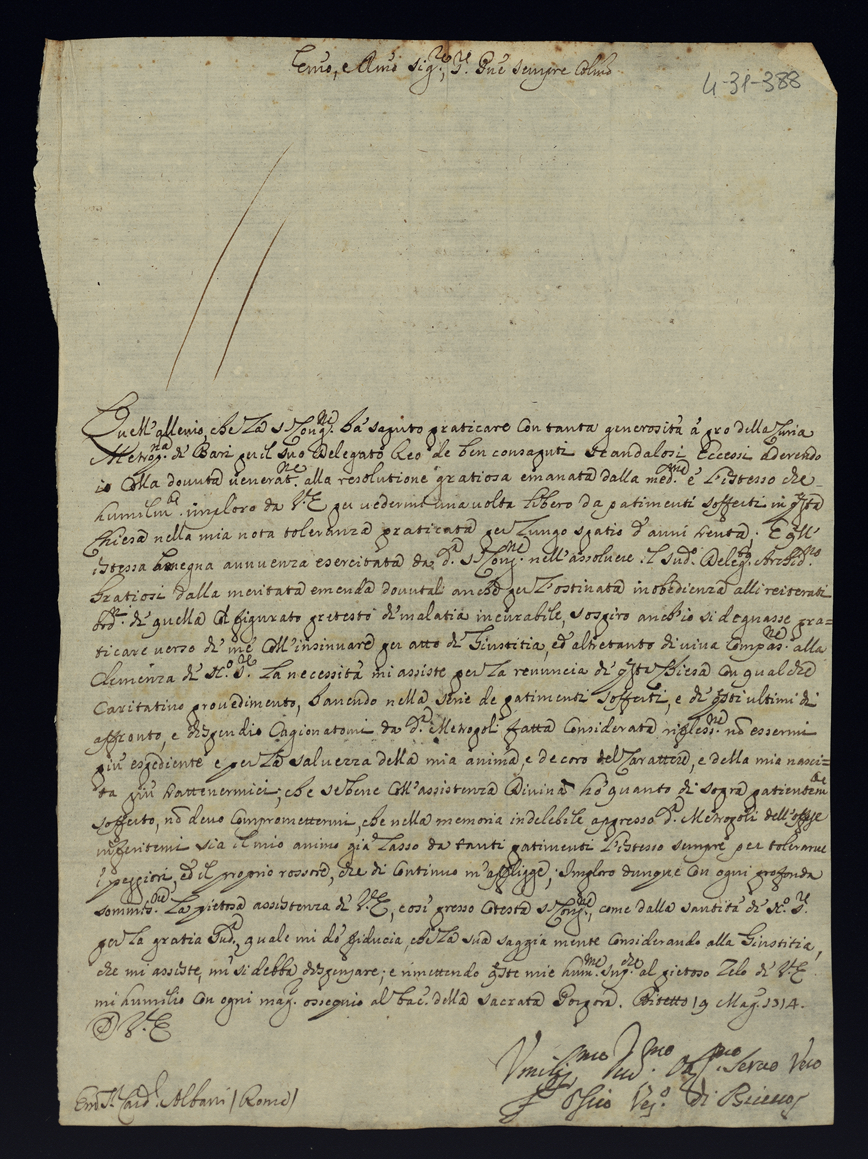 Emo, e Rmo Sig.re, S.r Pne sempre Colmo
4-31-388
Quell'allevio, che la S. Cong.ne hà saputo praticare con tanta generosità à pro della Curia
Metrop.na di Bari per il suo Delegato Reo de ben consaputi scandalosi eccessi aderendo
io colla dovuta venerat.ne alla resolutione gratiosa emanata dalla med.ma è l'istesso che
humilm.te imploro da V.E. per vedermi una volta libero da patimenti sofferti in q.sta
Chiesa nella mia nota toleranza praticata per lungo spatio d'anni trenta; E q.ll'
istessa benegna annuenza esercitata da d.a S. Cong.ne nell'assolvere il sud.o Deleg.to Archid.no
Gratiosi dalla meritata emenda dovutali anche per l'ostinata inobedienza alli reiterati
ord.ni di quella col figurato pretesto di malatia incurabile, sospiro anch'io si degnasse pra=
ticare verso di me coll'insinuare per atto di Giustitia, ed altretanto di viva compas.ne alla
Clemenza di N.o S.re la necessità mi assiste per la renuncia di q.sta Chiesa con qualche
caritativo provedimento, havendo nella serie de patimenti sofferti, e di q.sti ultimi di
affronto, e dispendio cagionatomi da d.a Metropoli fatta considerata rifless.ne nõ essermi
più espediente e per la salvezza della mia anima, e decoro del Carattere, e della mia nasci=
ta più trattenermici; che sebene coll'assistenza Divina hò quanto di sopra patientem.te
sofferto, nõ devo compromettermi, che nella memoria indelebile appresso d.a Metropoli dell'offese
inferitemi sia il mio animo già lasso da tanti patimenti l'istesso sempre per tolerarne
i peggiori, ed il proprio rossore, che di continuo m'affligge; Imploro dunque con ogni profonda
sommis.ne la pietosa assistenza di V.E., e così presso cotesta S. Cong.ne, come dalla santità di N.o S.re
per la gratia sud.a, quale mi dò fiducia, che la sua saggia mente considerando alla Giustitia,
che mi assiste, mi si debba dispensare; e rimettendo q.ste mie hum.me sup.che al pietoso zelo di V.E.
mi humilio con ogni mag.r ossequio al bac.o della sacrata Porpora. Bitetto 19 Mag.o 1714.
D V.E.
Umiliss.mo Dev.mo Obl.mo Servo Vero
Vesc.o di
Emo S.r Card.l Albani (Roma)